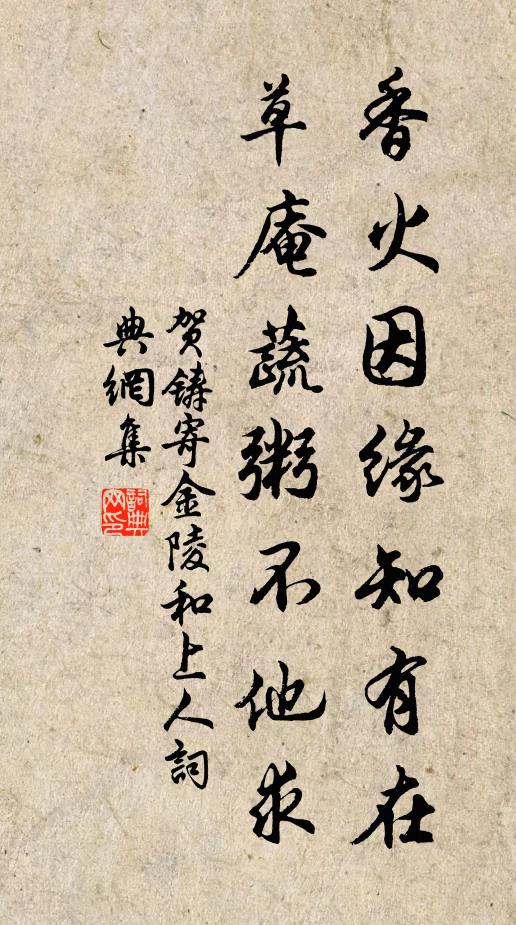 香火因缘知有在
草庵蔬粥不他求
贺铸寄金陵和上人词
典網集
詞典網印